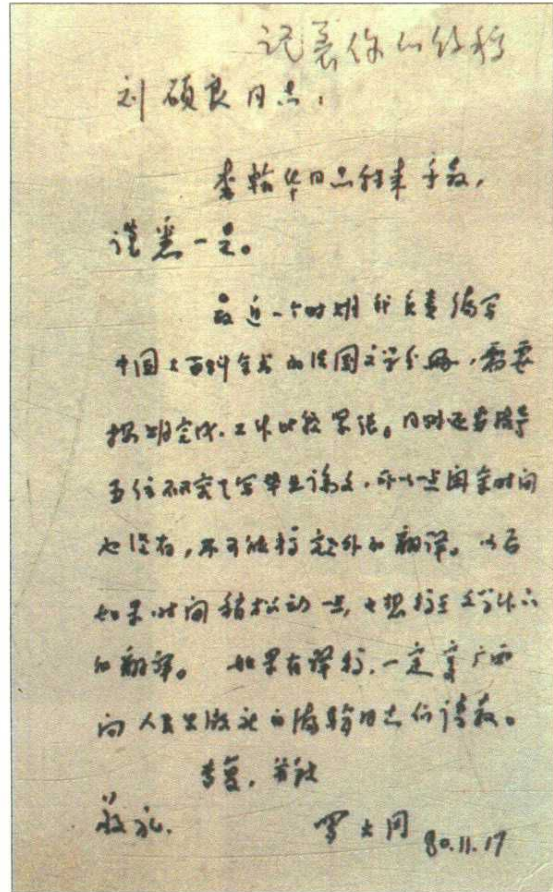 刘硕良同志：
李翰华同志转来手教，
谨悉一是。
最近一个时期我负责编写
中国大百科全书的法国文学分册，需要
按期完成，工作比较紧张。同时还要指导
五位研究生写毕业论文，所以一点闲余时间
也没有，不可能搞额外的翻译。以后
如果时间稍松动一点，也想搞些文学作品
的翻译。 如果有译稿，一定寄广西
向人民出版社的编辑同志们请教。
专复，并致
敬礼。
罗大冈 80.11.17